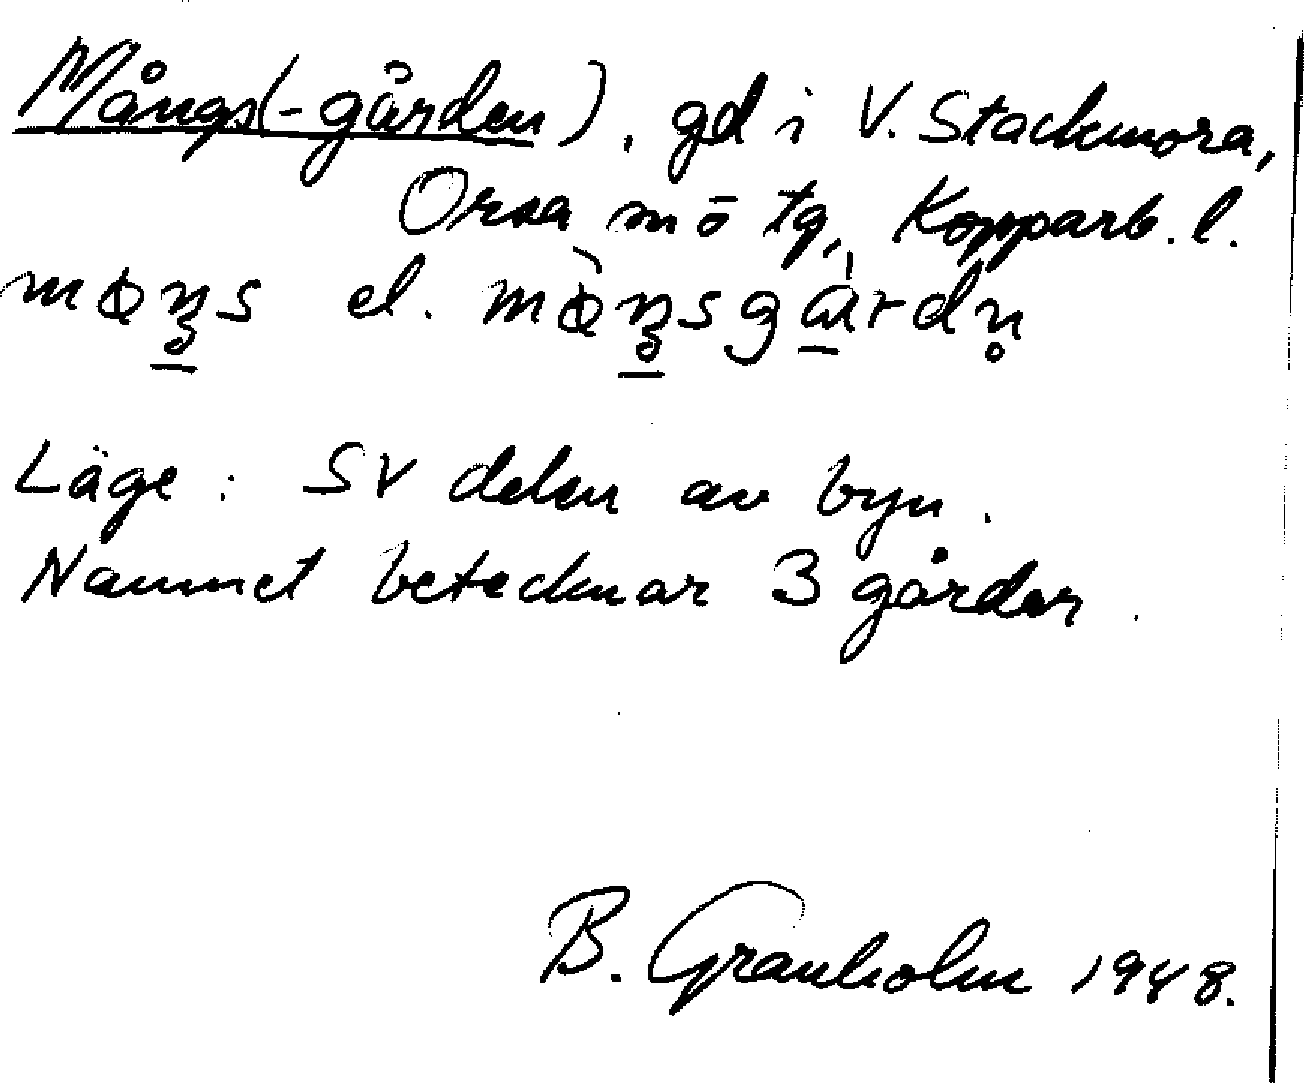 Mångs(-gården), gd i V. Stackmora,
Orsa sn ö tg, Kopparb. l.
el.
Läge: SV delen av byn.
Namnet betecknar 3 gårdar.
B. Granholm 1948.